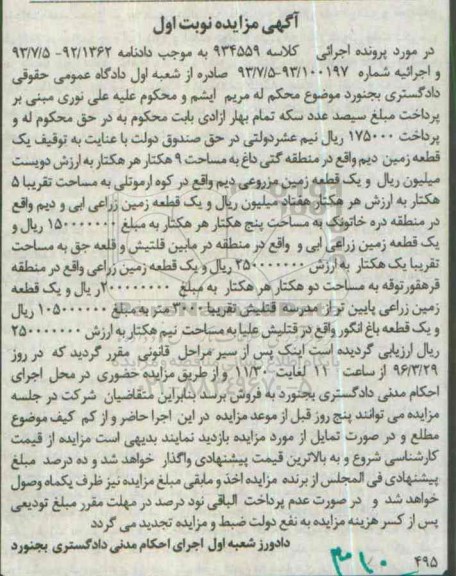 آگهی مزایده نوبت اول
در مورد پرونده اجرائی کلاسه ۹۳۴۵۵۹ به موجب دادنامه ۹۲/۱۳۶۲- ۹۳/۷/۵
و اجرائیه شماره ۹۳/۱۰۰۱۹۷-۹۳/۷/۵ صادره از شعبه اول دادگاه عمومی حقوقی
دادگستری بجنورد موضوع محکم له مریم ایشم و محکوم علیه علی نوری مبنی بر
پرداخت مبلغ سیصد عدد سکه تمام بهار ازادی بابت محکوم به در حق محکوم له و
پرداخت ۱۷۵۰۰۰ ریال نیم عشردولتی در حق صندوق دولت با عنایت به توقیف یک
قطعه زمین دیم واقع در منطقه گتی داغ به مساحت ۹ هکتار هر هکتار به ارزش دویست
میلیون ریال و یک قطعه زمین مزروعی دیم واقع در کوه ارموتلی به مساحت تقریبا ۵
هکتار به ارزش هر هکتار هفتاد میلیون ریال و یک قطعه زمین زراعی ابی و دیم واقع
در منطقه دره خاتونک به مساحت پنج هکتار هر هکتار به مبلغ ۱۵۰۰۰۰۰۰۰ ریال و
یک قطعه زمین زراعی آبی و واقع در منطقه در مابین قلتیش و قلعه جق به مساحت
تقریبا یک هکتار به ارزش ۲۵۰۰۰۰۰۰۰ ریال و یک قطعه زمین زراعی واقع در منطقه
قرهقورتوقه به مساحت دو هکتار هر هکتار به مبلغ ۲۰۰۰۰۰۰۰۰ ریال و یک قطعه
زمین زراعی پایین تر از مدرسه قتلیش تقریبا ۳۰۰ متر به مبلغ ۱۰۵۰۰۰۰۰۰ ریال
و یک قطعه باغ انگور واقع در قتلیش علیا به مساحت نیم هکتار به ارزش ۲۵۰۰۰۰۰۰۰
ریال ارزیابی گردیده است اینک پس از سیر مراحل قانونی مقرر گردید که در روز
۹۶/۳/۲۹ از ساعت ۱۱ لغایت ۱۱/۳۰ و از طریق مزایده حضوری در محل اجرای
احکام مدنی دادگستری بجنورد به فروش برسد بنابراین متقاضیان شرکت در جلسه
مزایده می توانند پنج روز قبل از موعد مزایده در این اجرا حاضر و از کم کیف موضوع
مطلع و در صورت تمایل از مورد مزایده بازدید نمایند بدیهی است مزایده از قیمت
کارشناسی شروع و به بالاترین قیمت پیشنهادی واگذار خواهد شد و ده درصد مبلغ
پیشنهادی فی المجلس از برنده مزایده اخذ و مابقی مبلغ مزایده نیز ظرف یکماه وصول
خواهد شد و در صورت عدم پرداخت الباقی نود درصد در مهلت مقرر مبلغ تودیعی
پس از کسر هزینه مزایده به نفع دولت ضبط و مزایده تجدید می گردد
دادورز شعبه اول اجرای احکام مدنی دادگستری بجنورد
۴۹۵